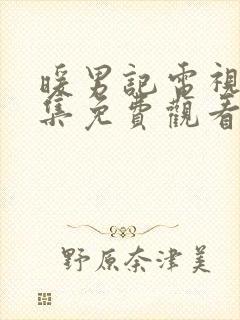 暖男記電視
集免費觀看
野原奈津美